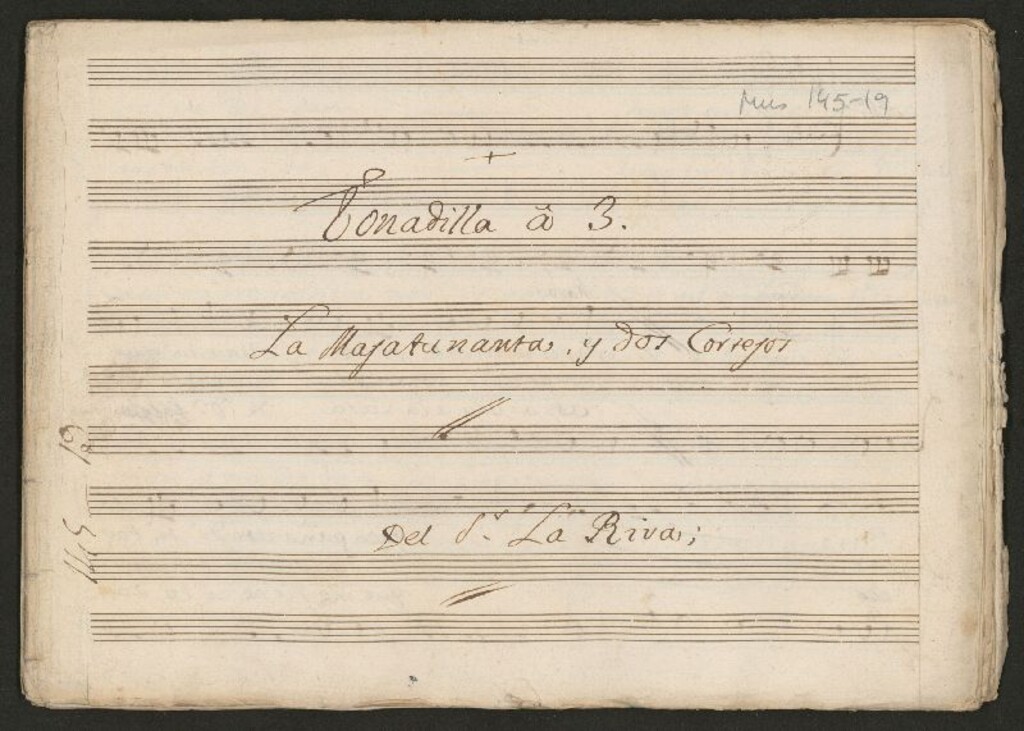 Mus 145-19
+
Tonadilla â 3.
La Majatunanta, y dos Cortejos
Del S.r La Riva;
145 19